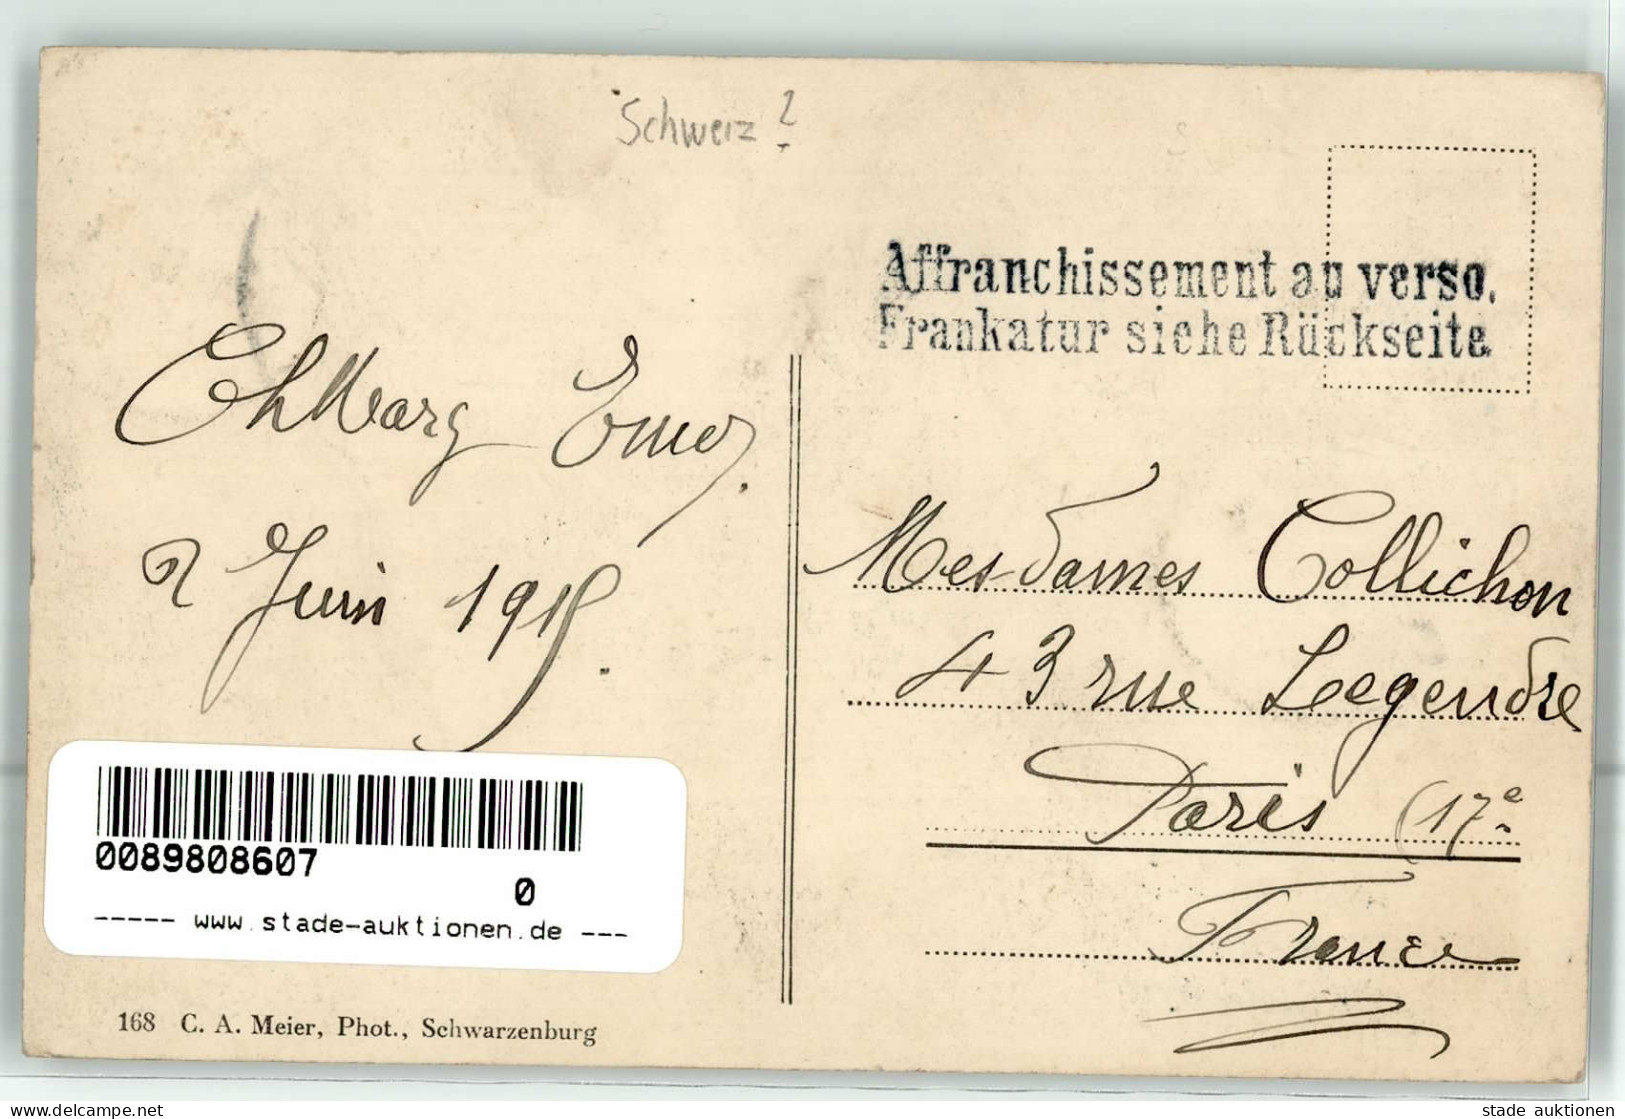 Schweiz?
Affranchissement au verso.
Frankatur siehe Rückseite.
2 Juin
Mesdames Collichon
43 rue Legendre
Paris (17e
France
0089808607
0
----- www.stade-auktionen.de ---
168 C. A. Meier, Phot., Schwarzenburg
stade auktionen
www.delcampe.net